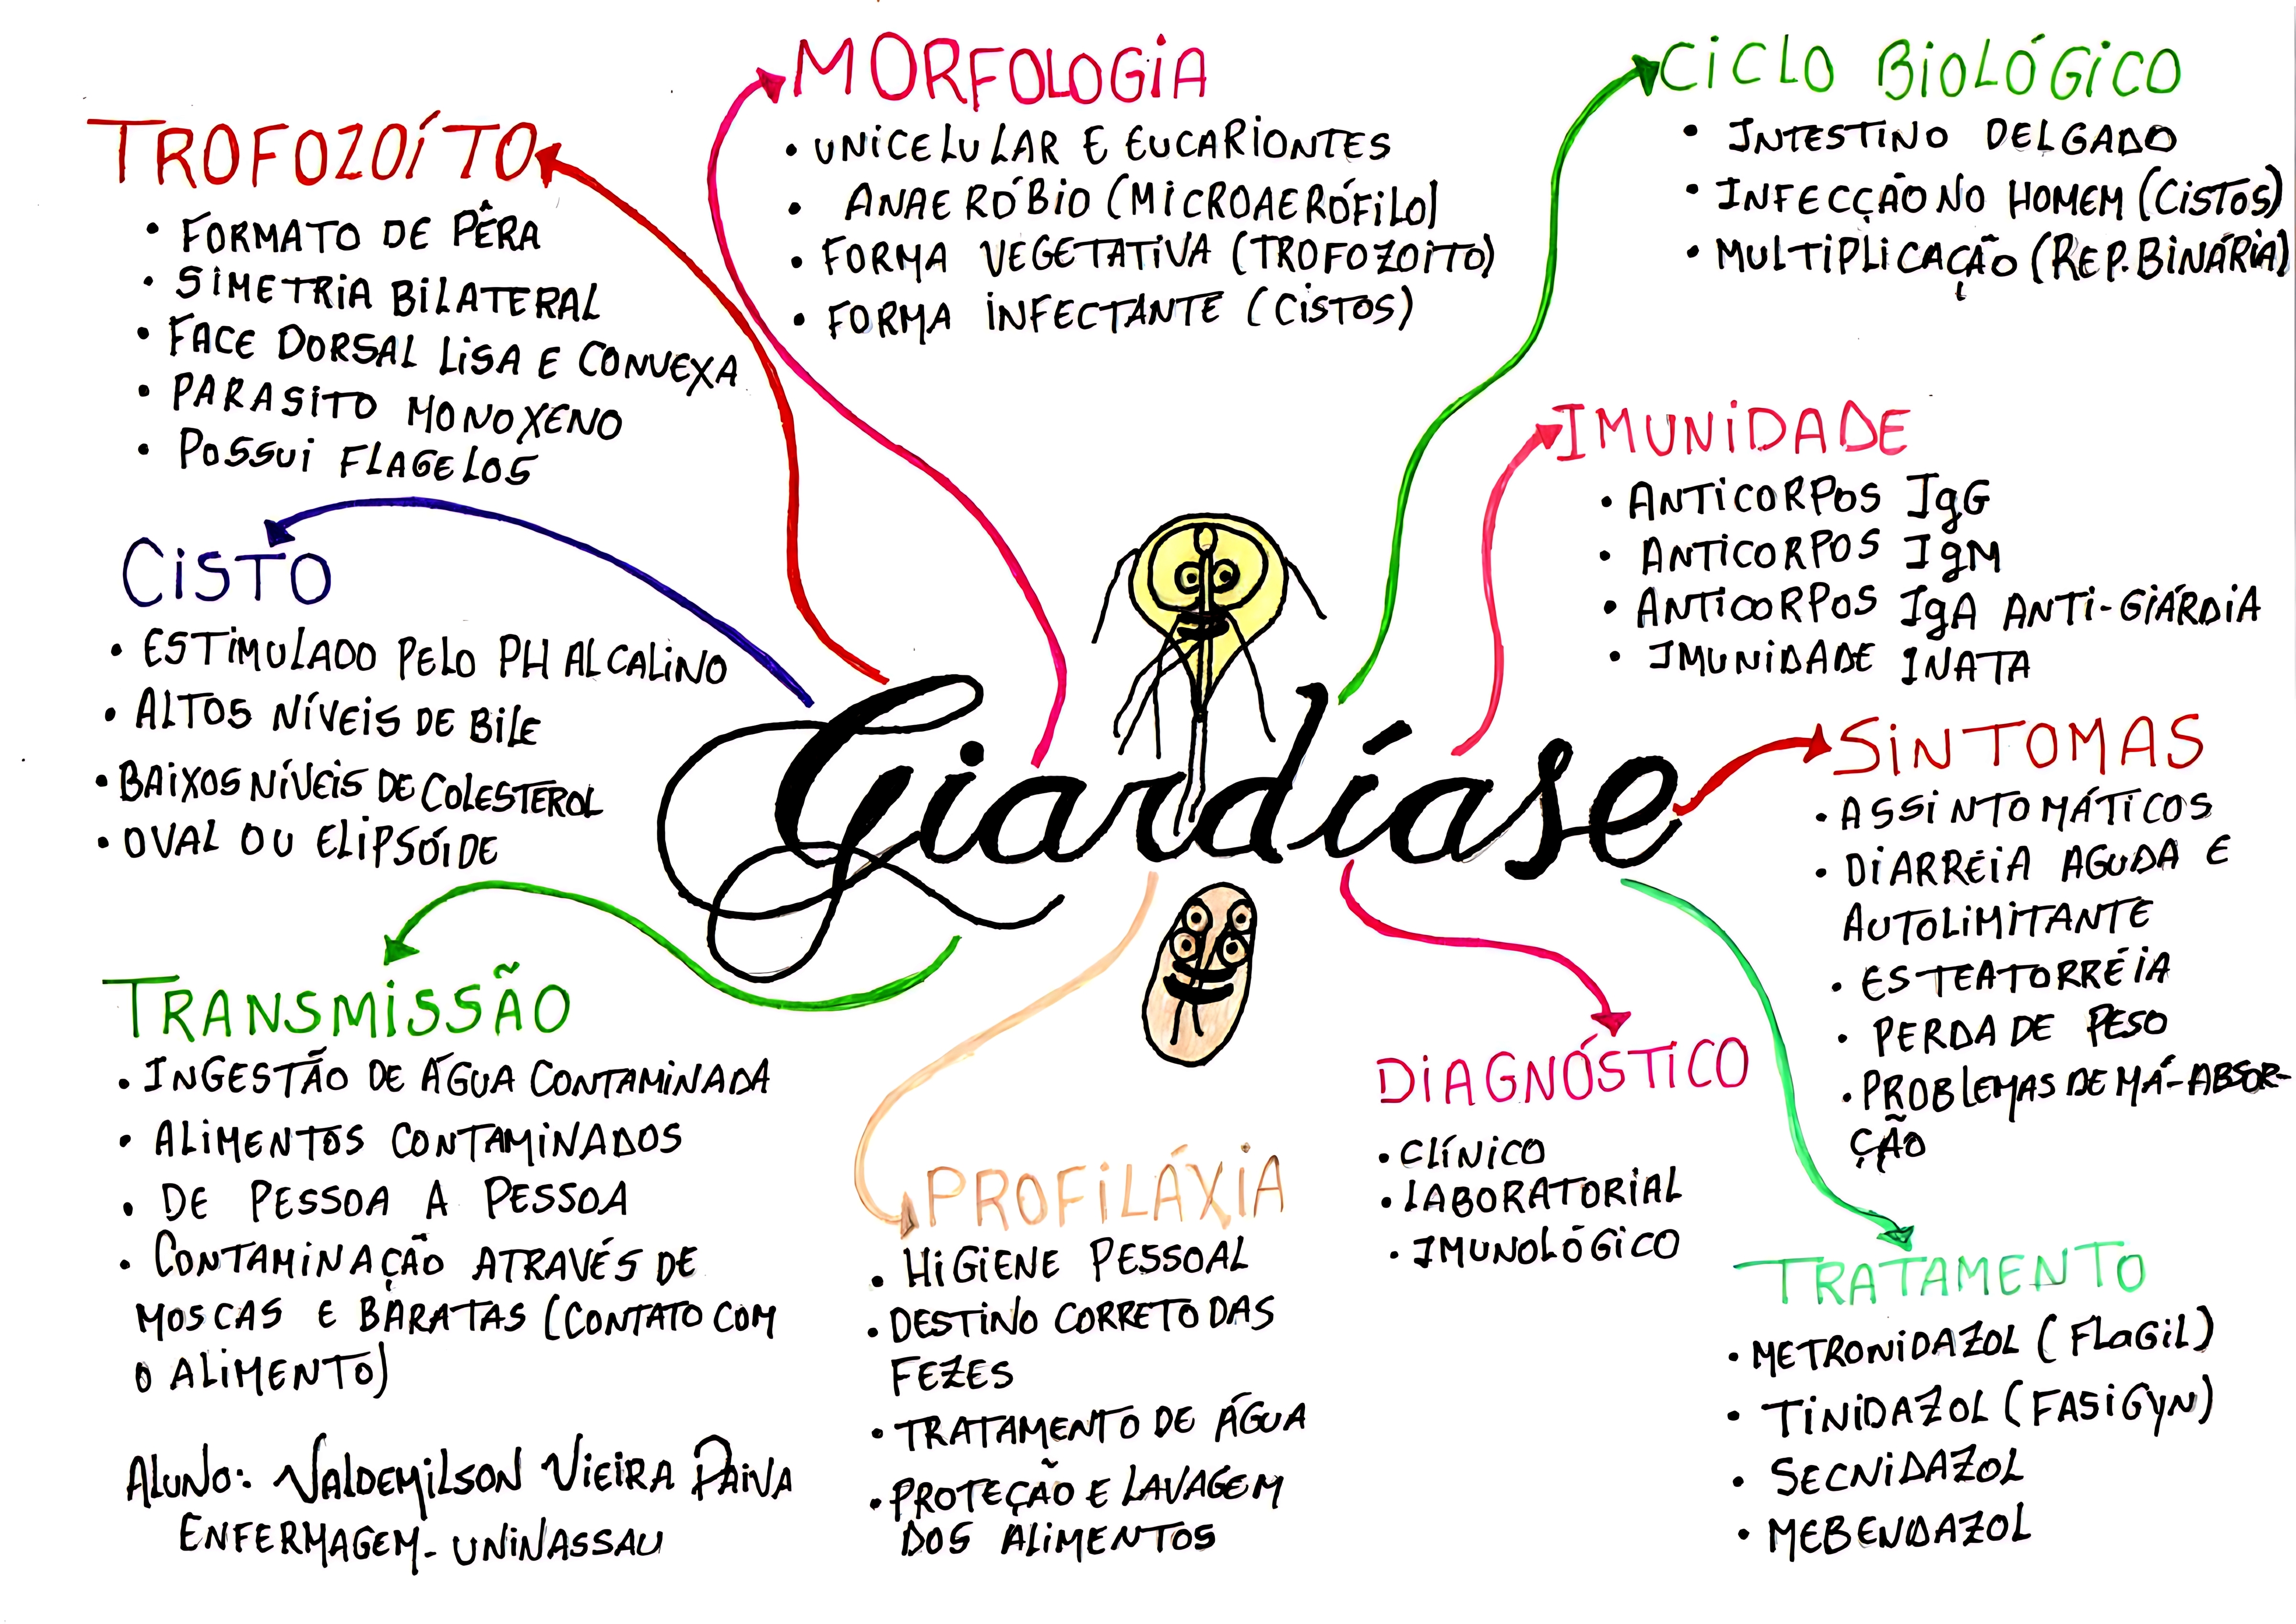 MORFOLOGIA
• UNICELULAR E EUCARIONTES
• ANAERÓBIO (MICROAERÓFILO)
• FORMA VEGETATIVA (TROFOZOITO)
• FORMA INFECTANTE (CISTOS)
CICLO BIOLÓGICO
• INTESTINO DELGADO
• INFECÇÃO NO HOMEM (CISTOS)
• MULTIPLICAÇÃO (REP. BINÁRIA)
TROFOZOÍTO
• FORMATO DE PÊRA
• SIMETRIA BILATERAL
• FACE DORSAL LISA E CONVEXA
• PARASITO MONOXENO
• POSSUI FLAGELOS
IMUNIDADE
• ANTICORPOS IgG
• ANTICORPOS IgM
• ANTICORPOS IgA ANTI-GIÁRDIA
• IMUNIDADE INATA
CISTO
• ESTIMULADO PELO PH ALCALINO
• ALTOS NÍVEIS DE BILE
• BAIXOS NÍVEIS DE COLESTEROL
• OVAL OU ELIPSÓIDE
Giardíase
SINTOMAS
• ASSINTOMÁTICOS
• DIARRÉIA AGUDA E
AUTOLIMITANTE
• ESTEATORRÉIA
• PERDA DE PESO
• PROBLEMAS DE MÁ-ABSOR-
ÇÃO
TRANSMISSÃO
• INGESTÃO DE ÁGUA CONTAMINADA
• ALIMENTOS CONTAMINADOS
• DE PESSOA A PESSOA
• CONTAMINAÇÃO ATRAVÉS DE
MOSCAS E BARATAS (CONTATO COM
O ALIMENTO)
PROFILÁXIA
• HIGIENE PESSOAL
• DESTINO CORRETO DAS
FEZES
• TRATAMENTO DE ÁGUA
• PROTEÇÃO E LAVAGEM
DOS ALIMENTOS
DIAGNÓSTICO
• CLÍNICO
• LABORATORIAL
• IMUNOLÓGICO
TRATAMENTO
• METRONIDAZOL (FLAGIL)
• TINIDAZOL (FASIGYN)
• SECNIDAZOL
• MEBENDAZOL
ALUNO: VALDEMILSON VIEIRA PAIVA
ENFERMAGEM - UNINASSAU